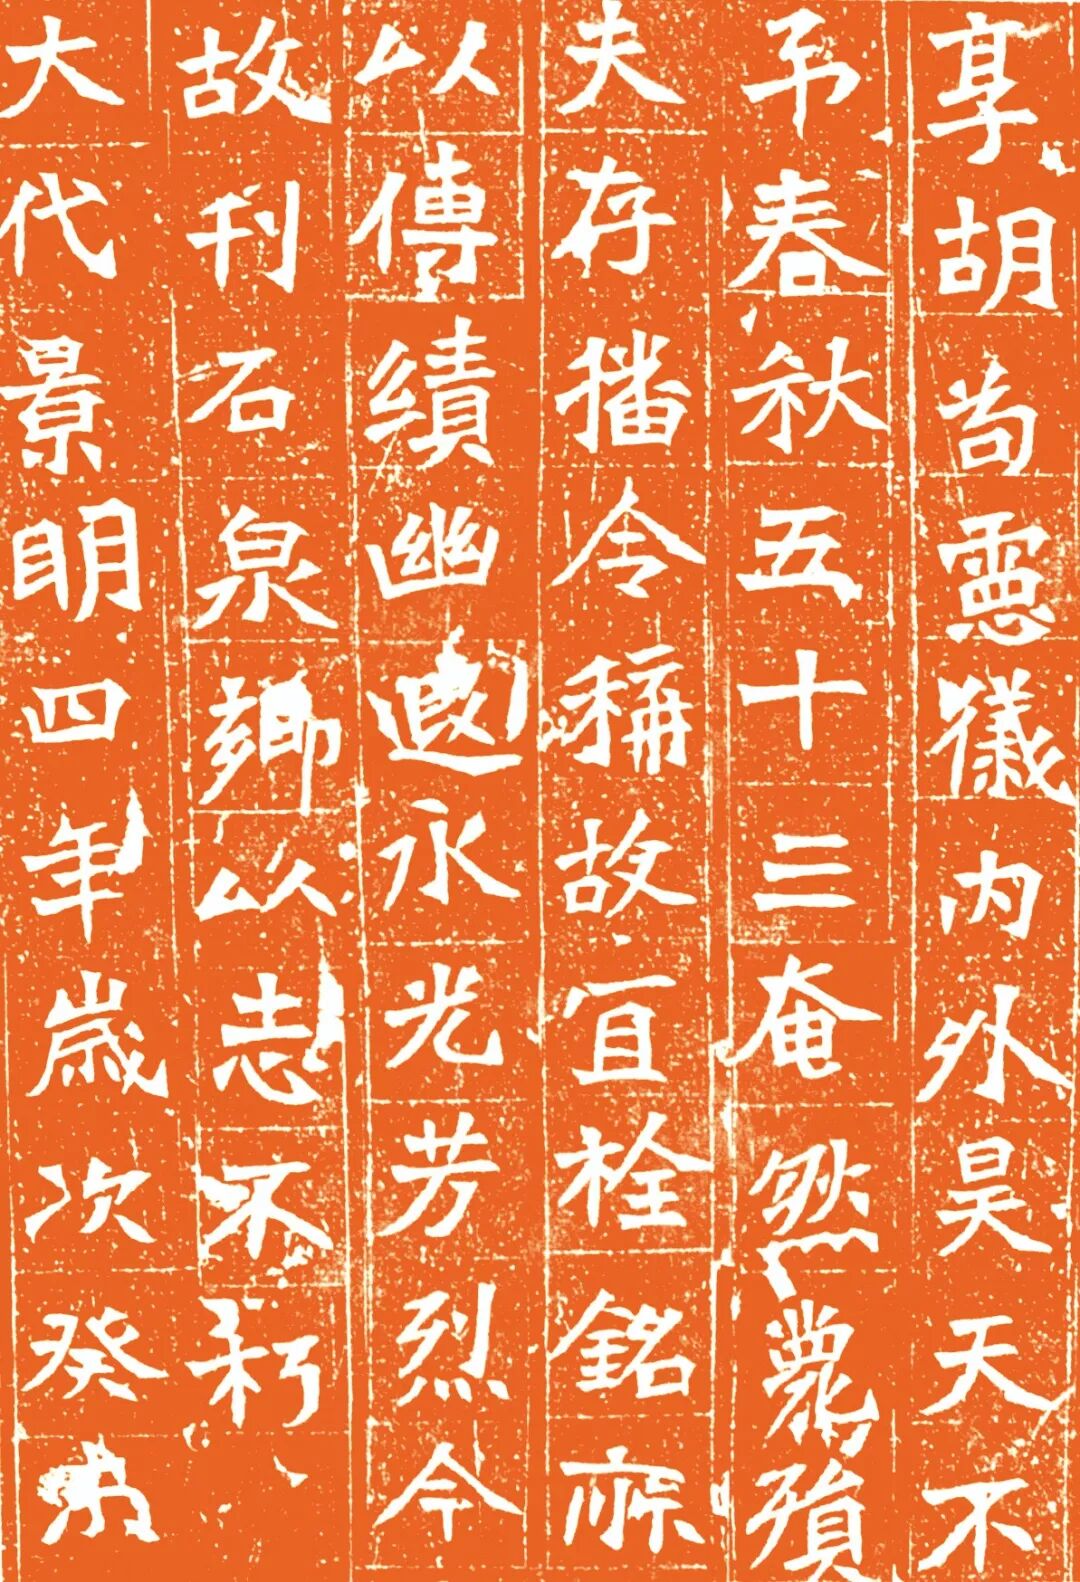 享胡苟靈內外昊天不
弔春秋五十三奄然薨殞
夫存播令稱故宜栓銘
以傳績幽遐永光芳烈今
故刊石泉鄉以志不朽
大代景明四年歲次癸